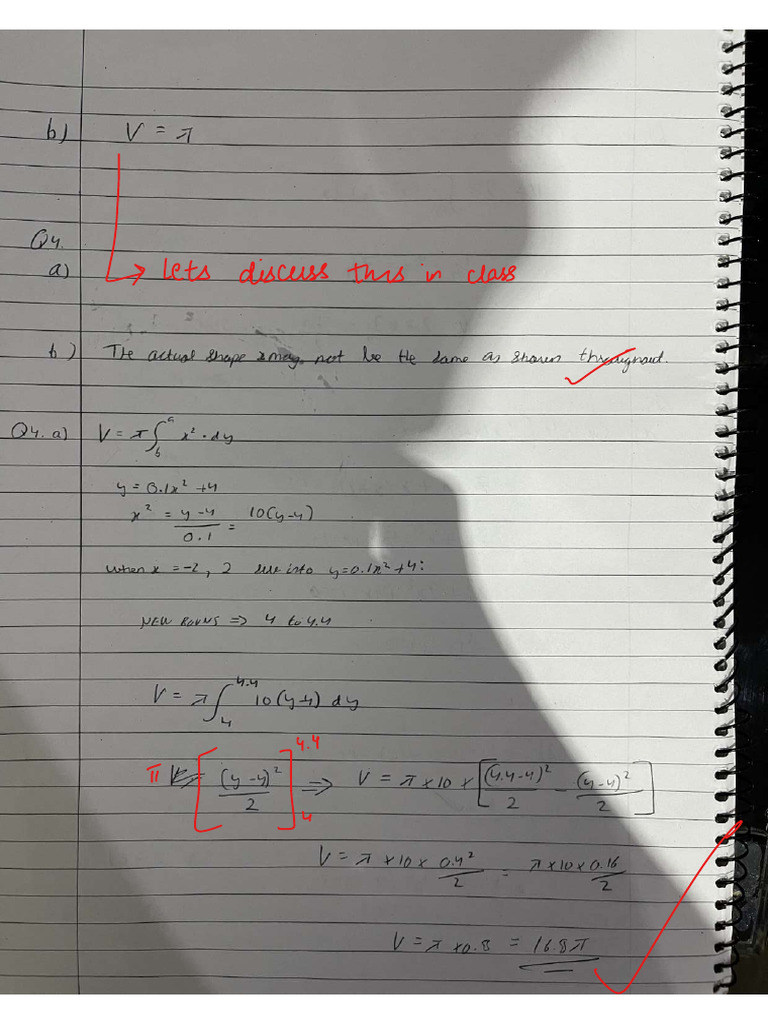 b) V = π
Q4.
a) → Lets discuss this in class
b) The actual shape may not be the same as shown throughout.
Q4. a) V = π∫_b^a x² · dy
y = 0.1x² + 4
x² = (y-4)/0.1 = 10(y-4)
when x = -2, 2 sub into y = 0.1x² + 4:
NEW BOUNS ⇒ 4 to 4.4
V = π∫_4^4.4 10(y-4) dy
π [(y-4)²/2]_4^4.4 ⇒ V = π × 10 × [(4.4-4)²/2 - (4-4)²/2]
V = π × 10 × 0.4²/2 = π × 10 × 0.16/2
V = π × 0.8 = 16.8π